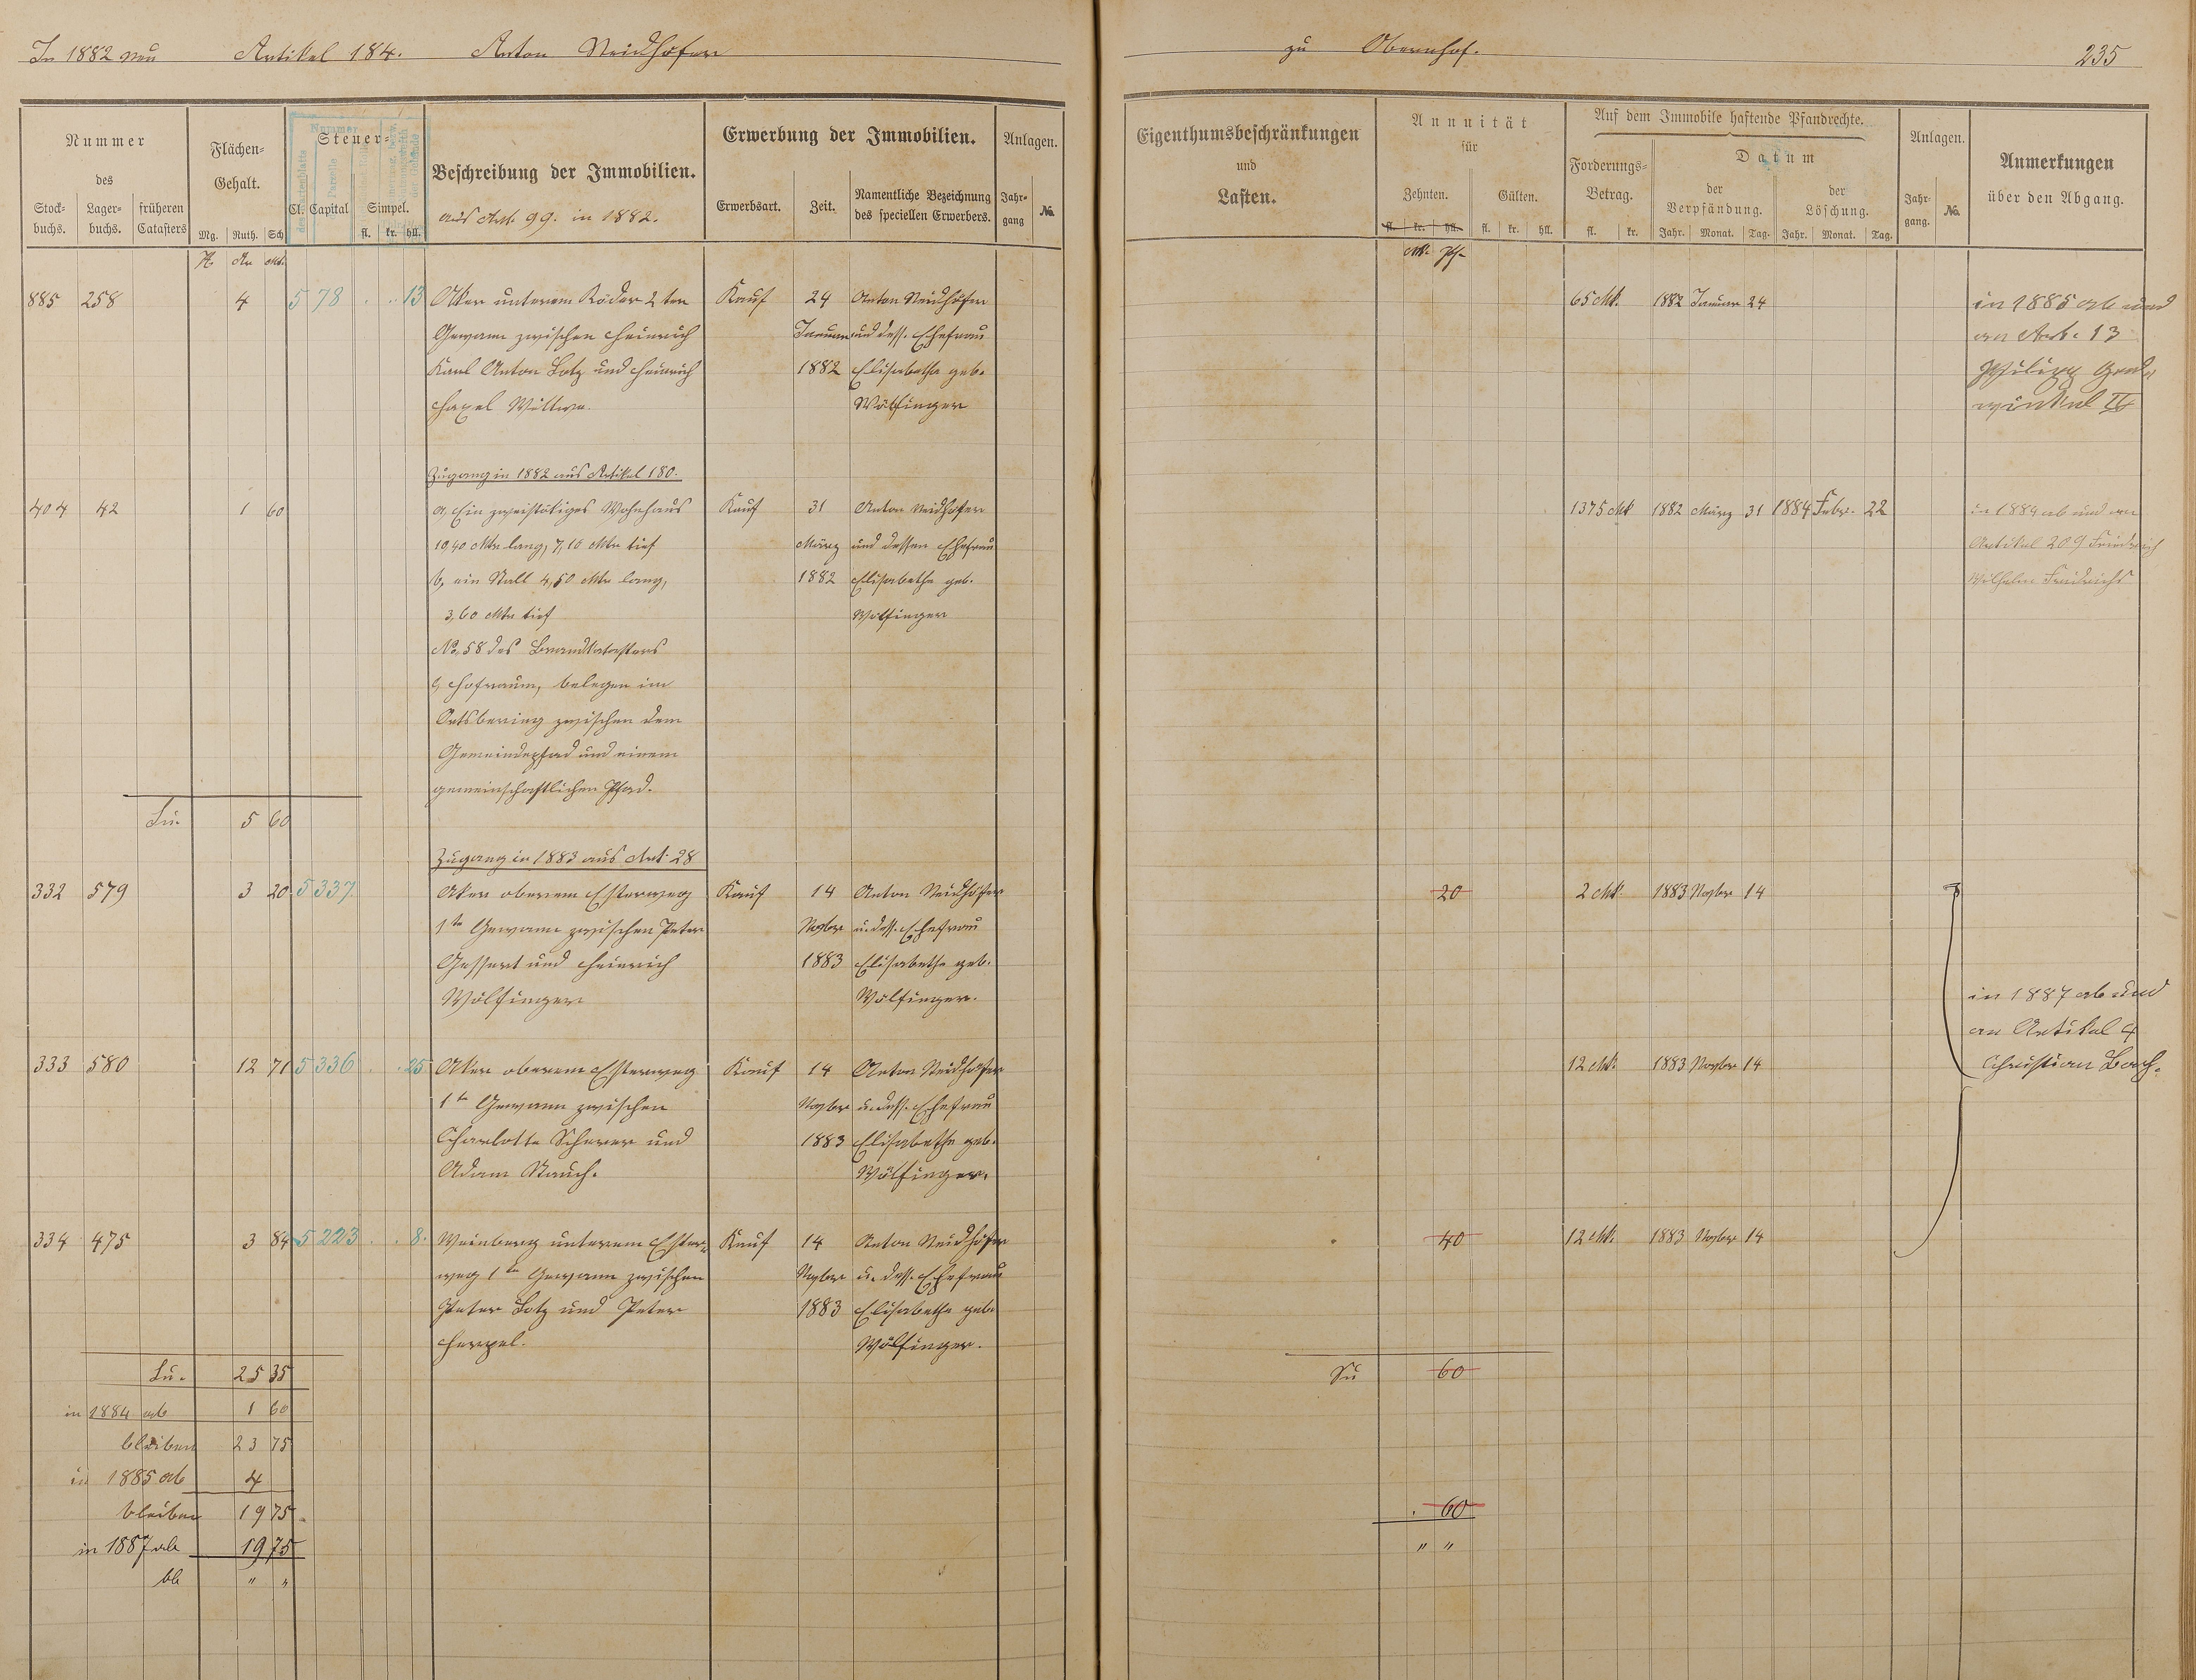 In 1882 neu Artikel 184. Anton Neidhöfer
zu Obernhof. 235
Nummer
des
Stock-
buchs.
Lager-
buchs.
früheren
Catasters
Flächen-
Gehalt.
Mg. Ruth. Sch
Steuer-
Cl. Capital Simpel.
fl. kr. hll.
Beschreibung der Immobilien.
aus Art. 99. in 1882.
Erwerbung der Immobilien.
Erwerbsart. Zeit.
Namentliche Bezeichnung
des speciellen Erwerbers.
Anlagen.
Jahr-
gang
No.
Eigenthumsbeschränkungen
und
Lasten.
Annuität
für
Zehnten. Gülten.
fl. kr. hll. fl. kr. hll.
Mk. Pf.
Auf dem Immobile haftende Pfandrechte.
Forderungs-
Betrag.
fl. kr.
Datum
der
Verpfändung.
Jahr. Monat. Tag.
der
Löschung.
Jahr. Monat. Tag.
Anlagen.
Jahr-
gang.
No.
Anmerkungen
über den Abgang.
H. Ar Mtr.
885 258 4 5 78 13 Aker unterem Röder 2ten Kauf 24 Anton Neidhöfer 65 Mk. 1882 Januar 24 in 1885 ab und
Gewann zwischen Heinrich Januar und dess. Ehefrau an Art. 13
Karl Anton Lotz und Heinrich 1882 Elisabethe geb.
Wittwe. Wölfinger
Zugang in 1882 aus Artikel 180.
404 42 1 60 a, Ein zweistökiges Wohnhaus Kauf 31 Anton Neidhöfer 1375 Mk 1882 März 31 1884 Febr. 22 in 1884 ab und an
10,40 Mtr lang, 7,10 Mtr tief März und dessen Ehefrau Artikel 209 Friedrich
b, ein Stall 4,50 Mtr lang, 1882 Elisabethe geb. Wilhelm Friedrichs
3,60 Mtr tief Wölfinger
No. 58 des Brandkatasters
c, Hofraum, belegen im
Ortsbering zwischen dem
Gemeindepfad und einem
gemeinschaftlichen Pfad.
Su. 5 60
Zugang in 1883 aus Art. 28
332 579 3 20 5 337 Aker oberem Esterweg Kauf 14 Anton Neidhöfer 20 2 Mk. 1883 Novbr 14
1te Gewann zwischen Peter Novbr u. dess. Ehefrau
Gessert und Heinrich 1883 Elisabethe geb.
Wölfinger Wölfinger.
in 1887 ab und
an Artikel 4
Christian Bach.
333 580 12 71 5 336 25 Aker oberem Esterweg Kauf 14 Anton Neidhöfer 12 Mk. 1883 Novbr 14
1te Gewann zwischen Novbr u. dess. Ehefrau
Charlotte Scherer und 1883 Elisabethe geb.
Adam Rauch. Wölfinger.
334 475 3 84 5 223 8. Weinberg unterem Ester- Kauf 14 Anton Neidhöfer 40 12 Mk. 1883 Novbr 14
weg 1te Gewann zwischen Novbr u. dess. Ehefrau
Peter Lotz und Peter 1883 Elisabethe geb.
Wölfinger.
Su. 25 35 Su 60
in 1884 ab 1 60
bleiben 23 75
in 1885 ab 4
bleiben 19 75 60
in 1887 ab 19 75 " "
bb " "